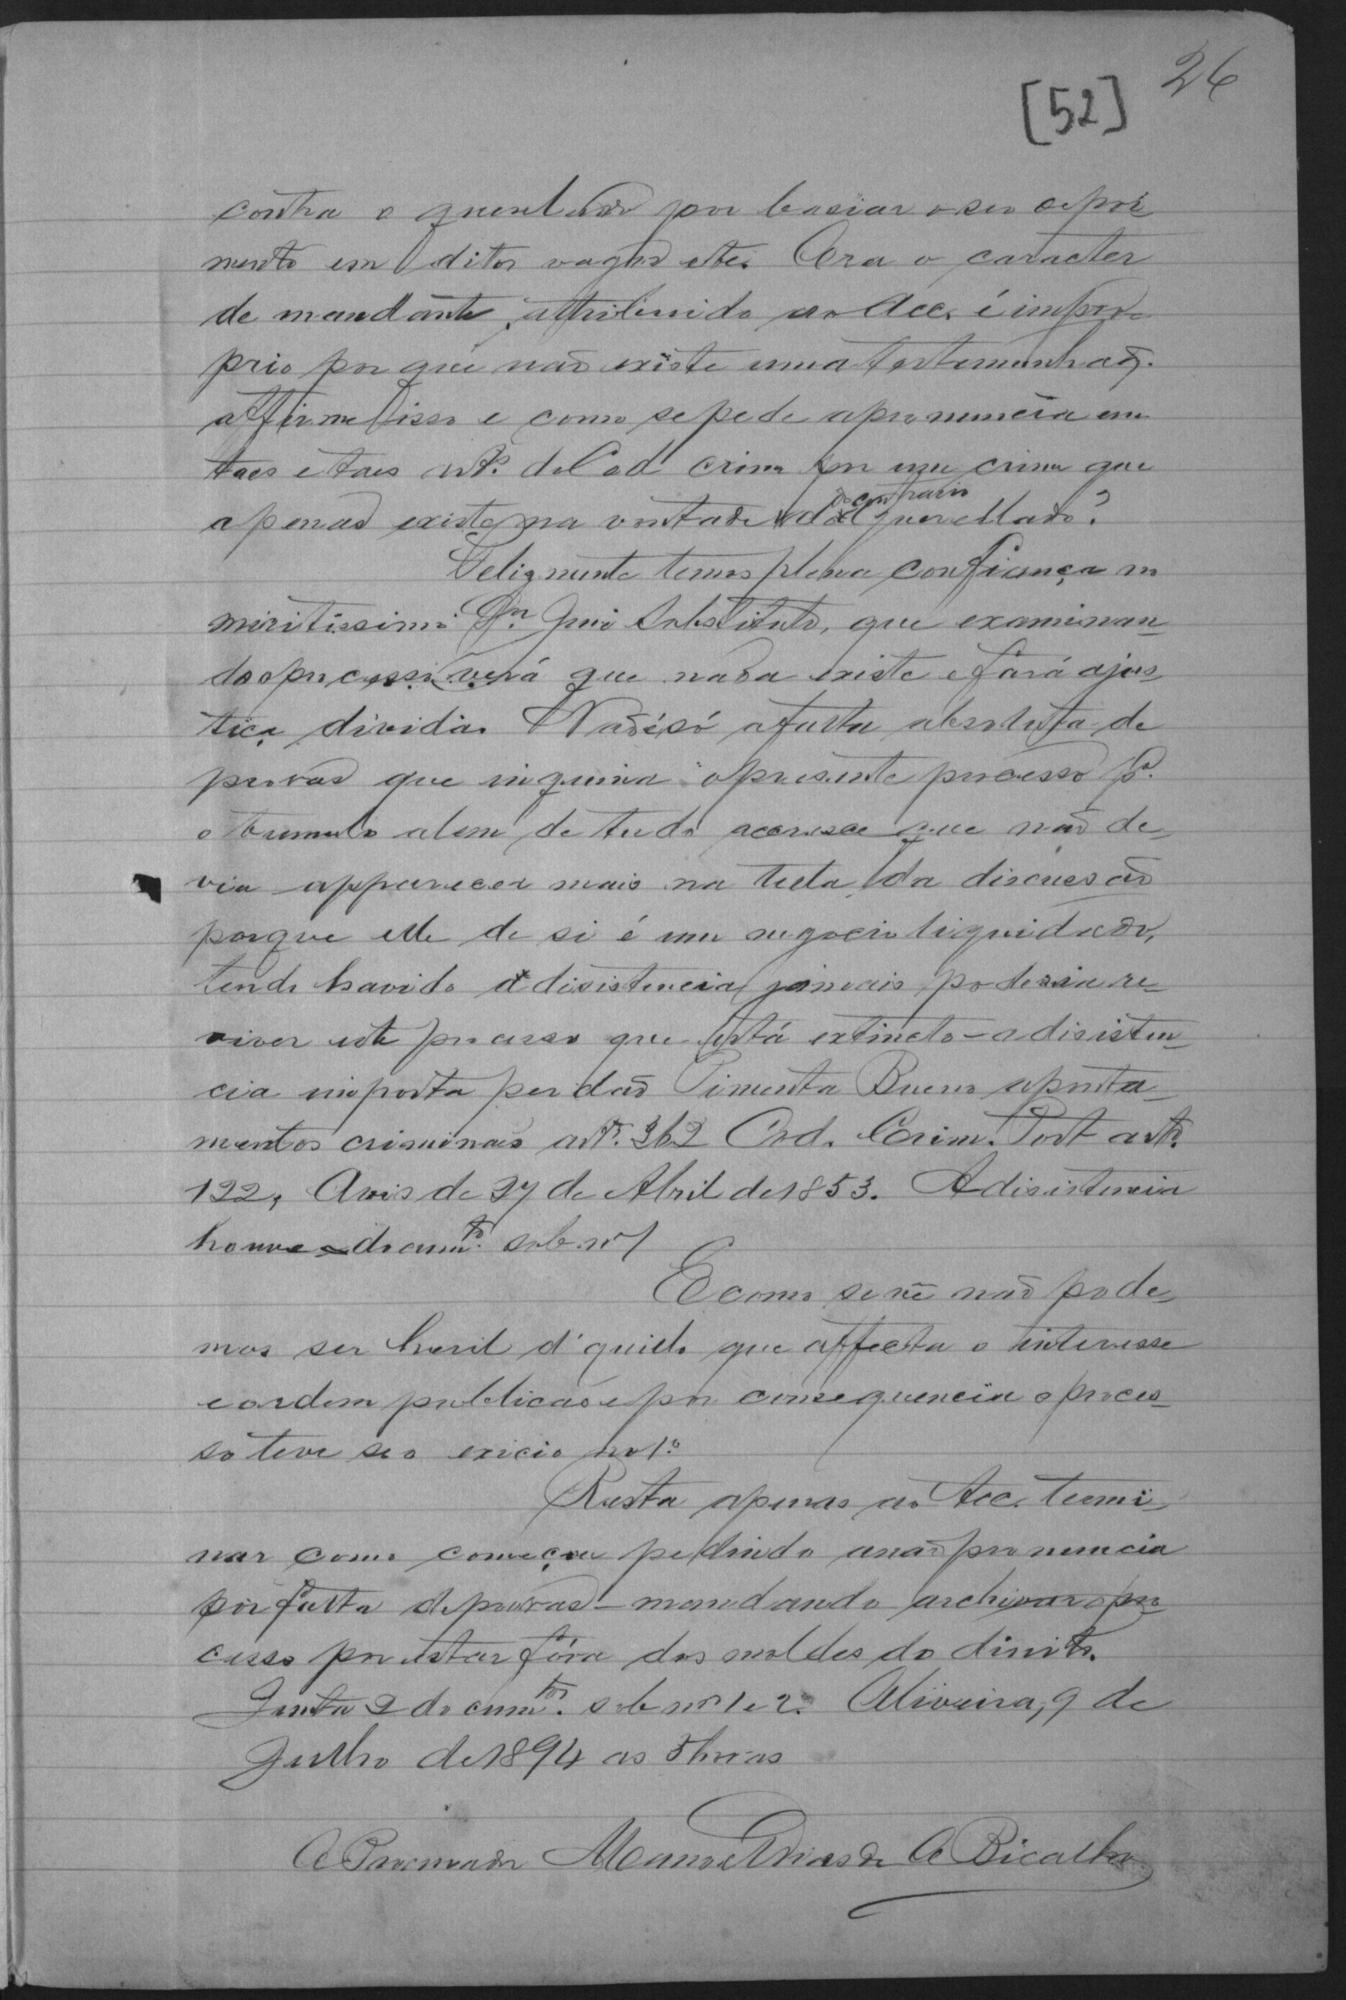 26
[52]
contra o querelado por basiar o seu depoi-
mento em ditos vagos etc. Ora o caracter
de mandante, attribuido ao Acc. é impro-
prio porque não existe uma testemunha q.
affirme isso e como se pede a pronuncia em
taes e taes art.os do Cod. crim. por um crime que
apenas existe na vontade do contrario querellado?
Felizmente temos plena confiança no
miritissimo Snr. Juiz Substituto, que examinan-
do o processo verá que nada existe e fará a jus-
tiça divida. Não é só a falta absoluta de
provas que inquina o presente processo p.a
o tumulo alem de tudo accresce que não de-
via apparecer mais na tela da discussão
porque elle de si é um negocio liquidado,
tendo havido a disistencia jamais poderia re-
viver este processo que está extincto - a disisten-
cia importa perdão Pimenta Bueno aponta-
mentos criminaes art.o 362 Cod. Crim. Port art.
122, Avis de 27 de Abril de 1853. A disistencia
houve documt.o sob nº 1
E como se vê não pode-
mos ser d'aquillo que affecta o interesse
e ordem publica e por consequencia o proces-
so teve seo exicio no 1º
Resta apenas ao Acc. termi-
nar como começou pedindo a não pronuncia
por falta de provas - mandando archivar o pro-
cesso por estar fóra dos moldes do direito.
Junta 2 documt.os sob nos 1 e 2. Oliveira, 9 de
Julho de 1894 as horas
O Procurador Manoel Dias de O Bicalho